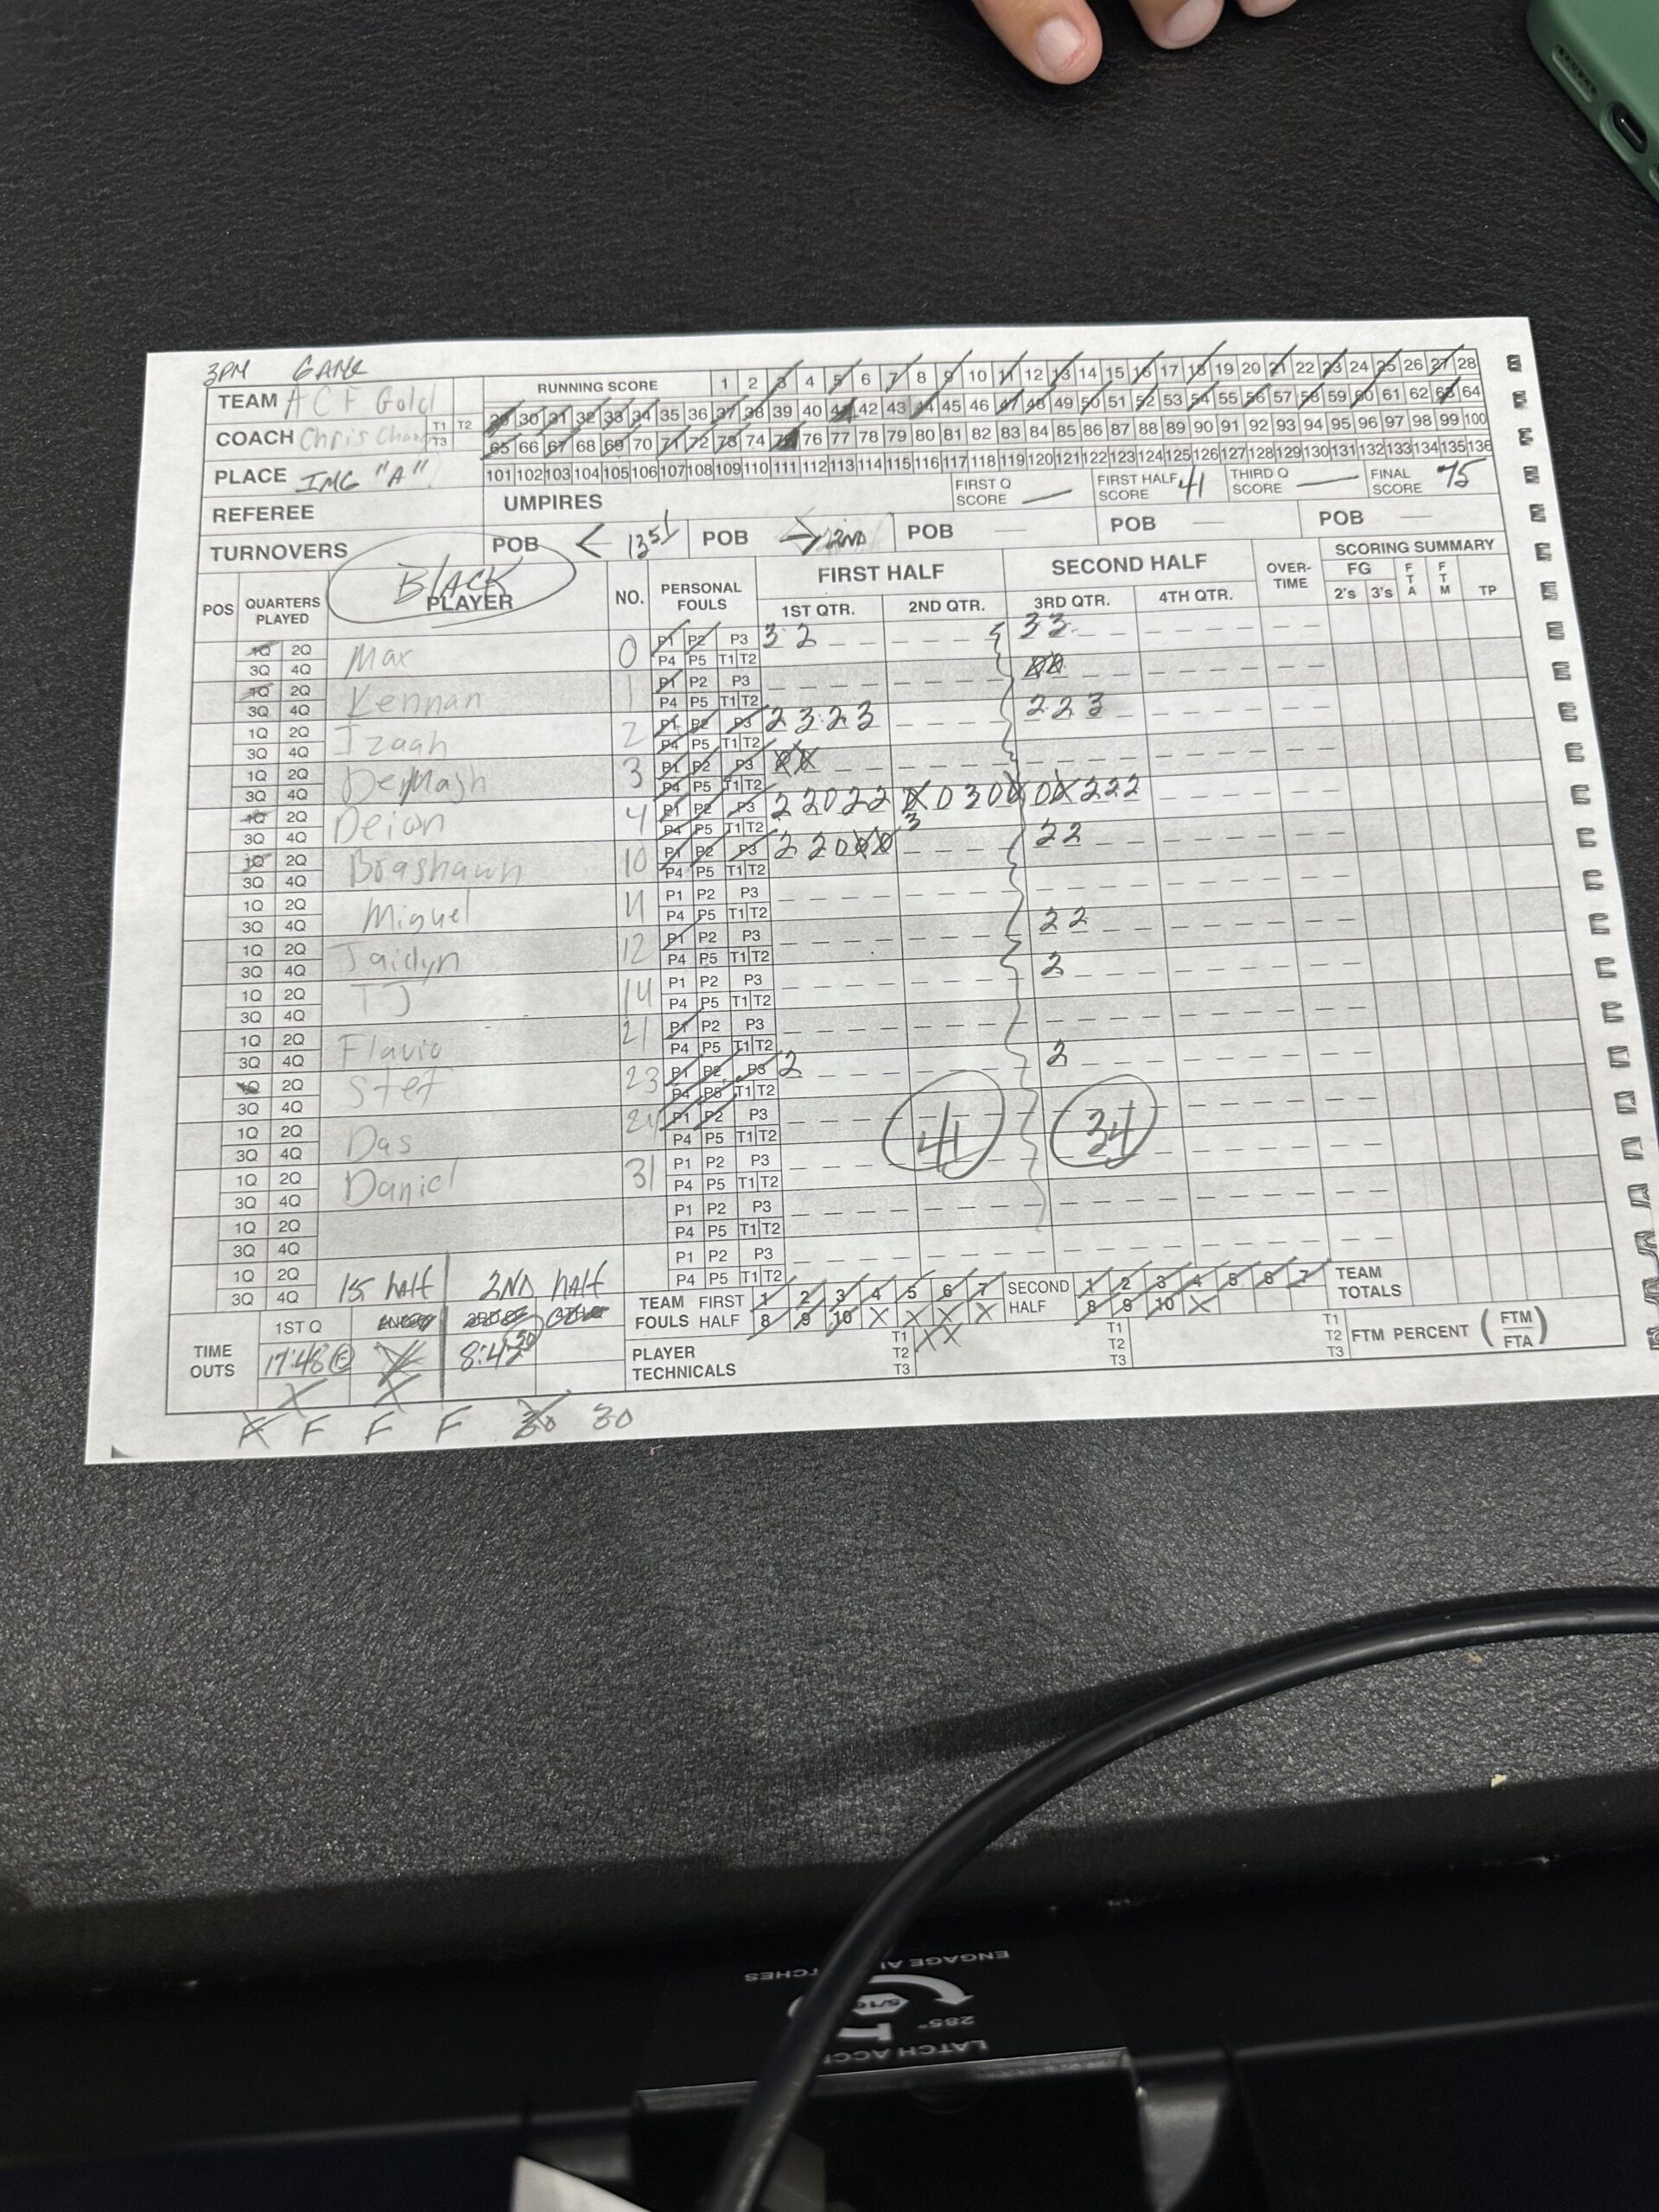 3PM GAME
TEAM ACF Gold
RUNNING SCORE 1 2 3 4 5 6 7 8 9 10 11 12 13 14 15 16 17 18 19 20 21 22 23 24 25 26 27 28
29 30 31 32 33 34 35 36 37 38 39 40 41 42 43 44 45 46 47 48 49 50 51 52 53 54 55 56 57 58 59 60 61 62 63 64
COACH Chris T1 T2 T3
65 66 67 68 69 70 71 72 73 74 75 76 77 78 79 80 81 82 83 84 85 86 87 88 89 90 91 92 93 94 95 96 97 98 99 100
PLACE IMG "A"
101 102 103 104 105 106 107 108 109 110 111 112 113 114 115 116 117 118 119 120 121 122 123 124 125 126 127 128 129 130 131 132 133 134 135 136
REFEREE UMPIRES FIRST Q SCORE — FIRST HALF SCORE 41 THIRD Q SCORE — FINAL SCORE 75
TURNOVERS POB < 1st POB → 2ND POB — POB — POB —
POS QUARTERS PLAYED BLACK PLAYER NO. PERSONAL FOULS FIRST HALF SECOND HALF OVER-TIME SCORING SUMMARY
1ST QTR. 2ND QTR. 3RD QTR. 4TH QTR. FG 2's 3's FTA FTM TP
1Q 2Q 3Q 4Q Max 0 P1 P2 P3 P4 P5 T1 T2 3 2 3 3
1Q 2Q 3Q 4Q Kennan 1 P1 P2 P3 P4 P5 T1 T2
1Q 2Q 3Q 4Q Izaah 2 P1 P2 P3 P4 P5 T1 T2 2 3 2 3 2 2 3
1Q 2Q 3Q 4Q DeMash 3 P1 P2 P3 P4 P5 T1 T2
1Q 2Q 3Q 4Q Deion 4 P1 P2 P3 P4 P5 T1 T2 2 2 0 2 2 0 3 0 0 2 2 2
3
1Q 2Q 3Q 4Q Brashawn 10 P1 P2 P3 P4 P5 T1 T2 2 2 0 2 2
1Q 2Q 3Q 4Q Miguel 11 P1 P2 P3 P4 P5 T1 T2
1Q 2Q 3Q 4Q Jaidyn 12 P1 P2 P3 P4 P5 T1 T2 2 2
1Q 2Q 3Q 4Q TJ 14 P1 P2 P3 P4 P5 T1 T2 2
1Q 2Q 3Q 4Q Flavio 21 P1 P2 P3 P4 P5 T1 T2
1Q 2Q 3Q 4Q Stef 23 P1 P2 P3 P4 P5 T1 T2 2 2
1Q 2Q 3Q 4Q Das 24 P1 P2 P3 P4 P5 T1 T2 41 34
1Q 2Q 3Q 4Q Daniel 31 P1 P2 P3 P4 P5 T1 T2
1Q 2Q 3Q 4Q P1 P2 P3 P4 P5 T1 T2
1Q 2Q 3Q 4Q 1S half 2ND half P1 P2 P3 P4 P5 T1 T2
TEAM FOULS FIRST HALF 1 2 3 4 5 6 7 8 9 10 X X X X SECOND HALF 1 2 3 4 5 6 7 8 9 10 X TEAM TOTALS
TIME OUTS 1ST Q 17:48 8:42 30
PLAYER TECHNICALS T1 T2 T3 XX T1 T2 T3 T1 T2 T3 FTM PERCENT (FTM/FTA)
X X
F F F F 30 30
ENGAGE
5/16
285°
LATCH